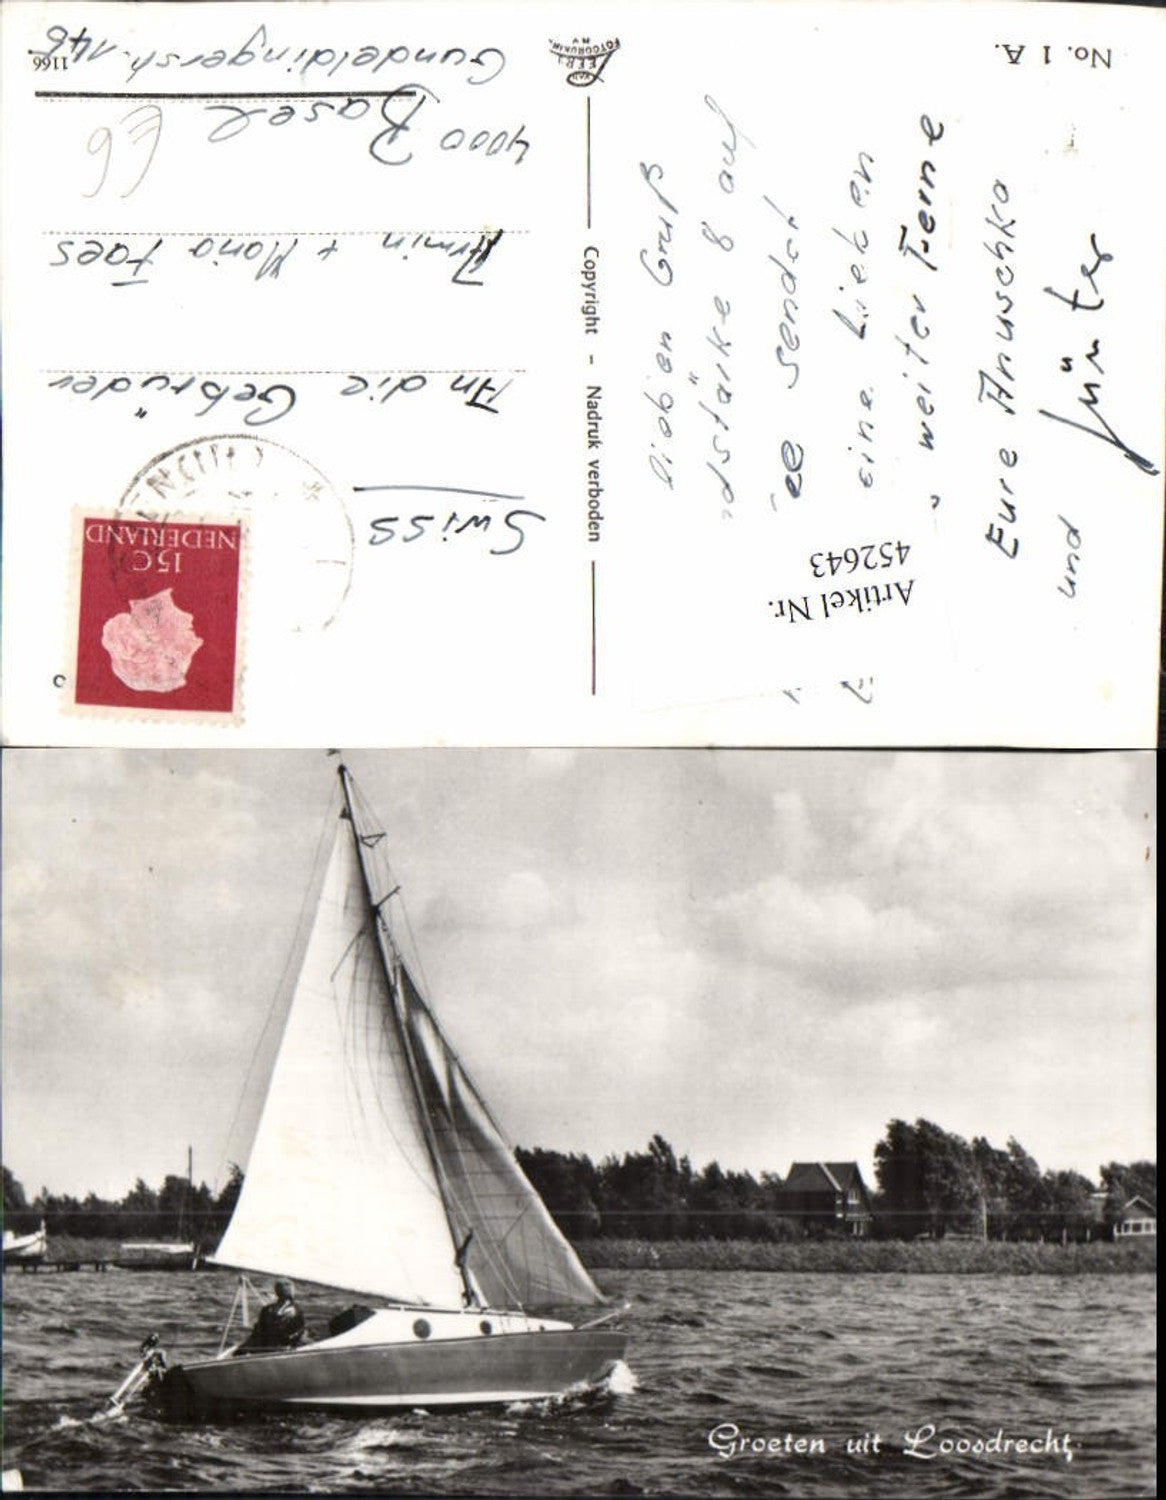 No. 1 A.
lieben Gruß
dstärke 8 auf
ee sendet
eine lieben
weiter Ferne
Eure Anuschka
und
Günter
Artikel Nr.
452643
Copyright - Nadruk verboden
VAN
LEER'S
FOTODRUKIN.
N V
NEDERLAND
15 C
Swiss
An die Gebrüder
Armin + Mario Faes
4000 Basel
E6
Gundeldingerstr. 145
1166
Groeten uit Loosdrecht